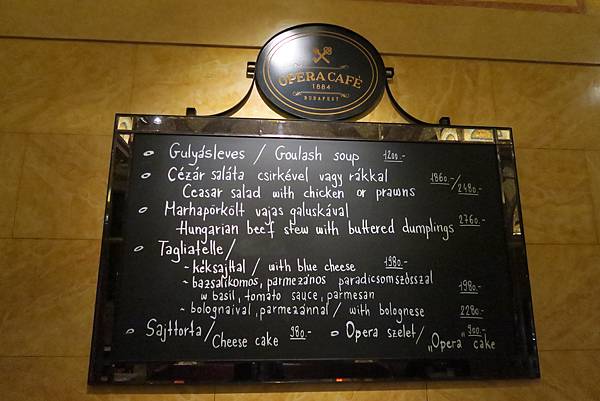 OPERA CAFÉ
1884
BUDAPEST
Gulyásleves / Goulash soup 1200.-
Cézár saláta csirkével vagy rákkal 1860.-/
Ceasar salad with chicken or prawns 2480.-
Marhapörkölt vajas galuskával
Hungarian beef stew with buttered dumplings 2760.-
Tagliatelle/
- késajttal / with blue cheese 1980.-
- bazsalikomos, parmezános paradicsomszósszal
w basil, tomato sauce, parmesan 1980.-
- bolognaival, parmezánnal / with bolognese 2280.-
Sajttorta/ Cheese cake 980.- Opera szelet/ 900.-
„Opera" cake